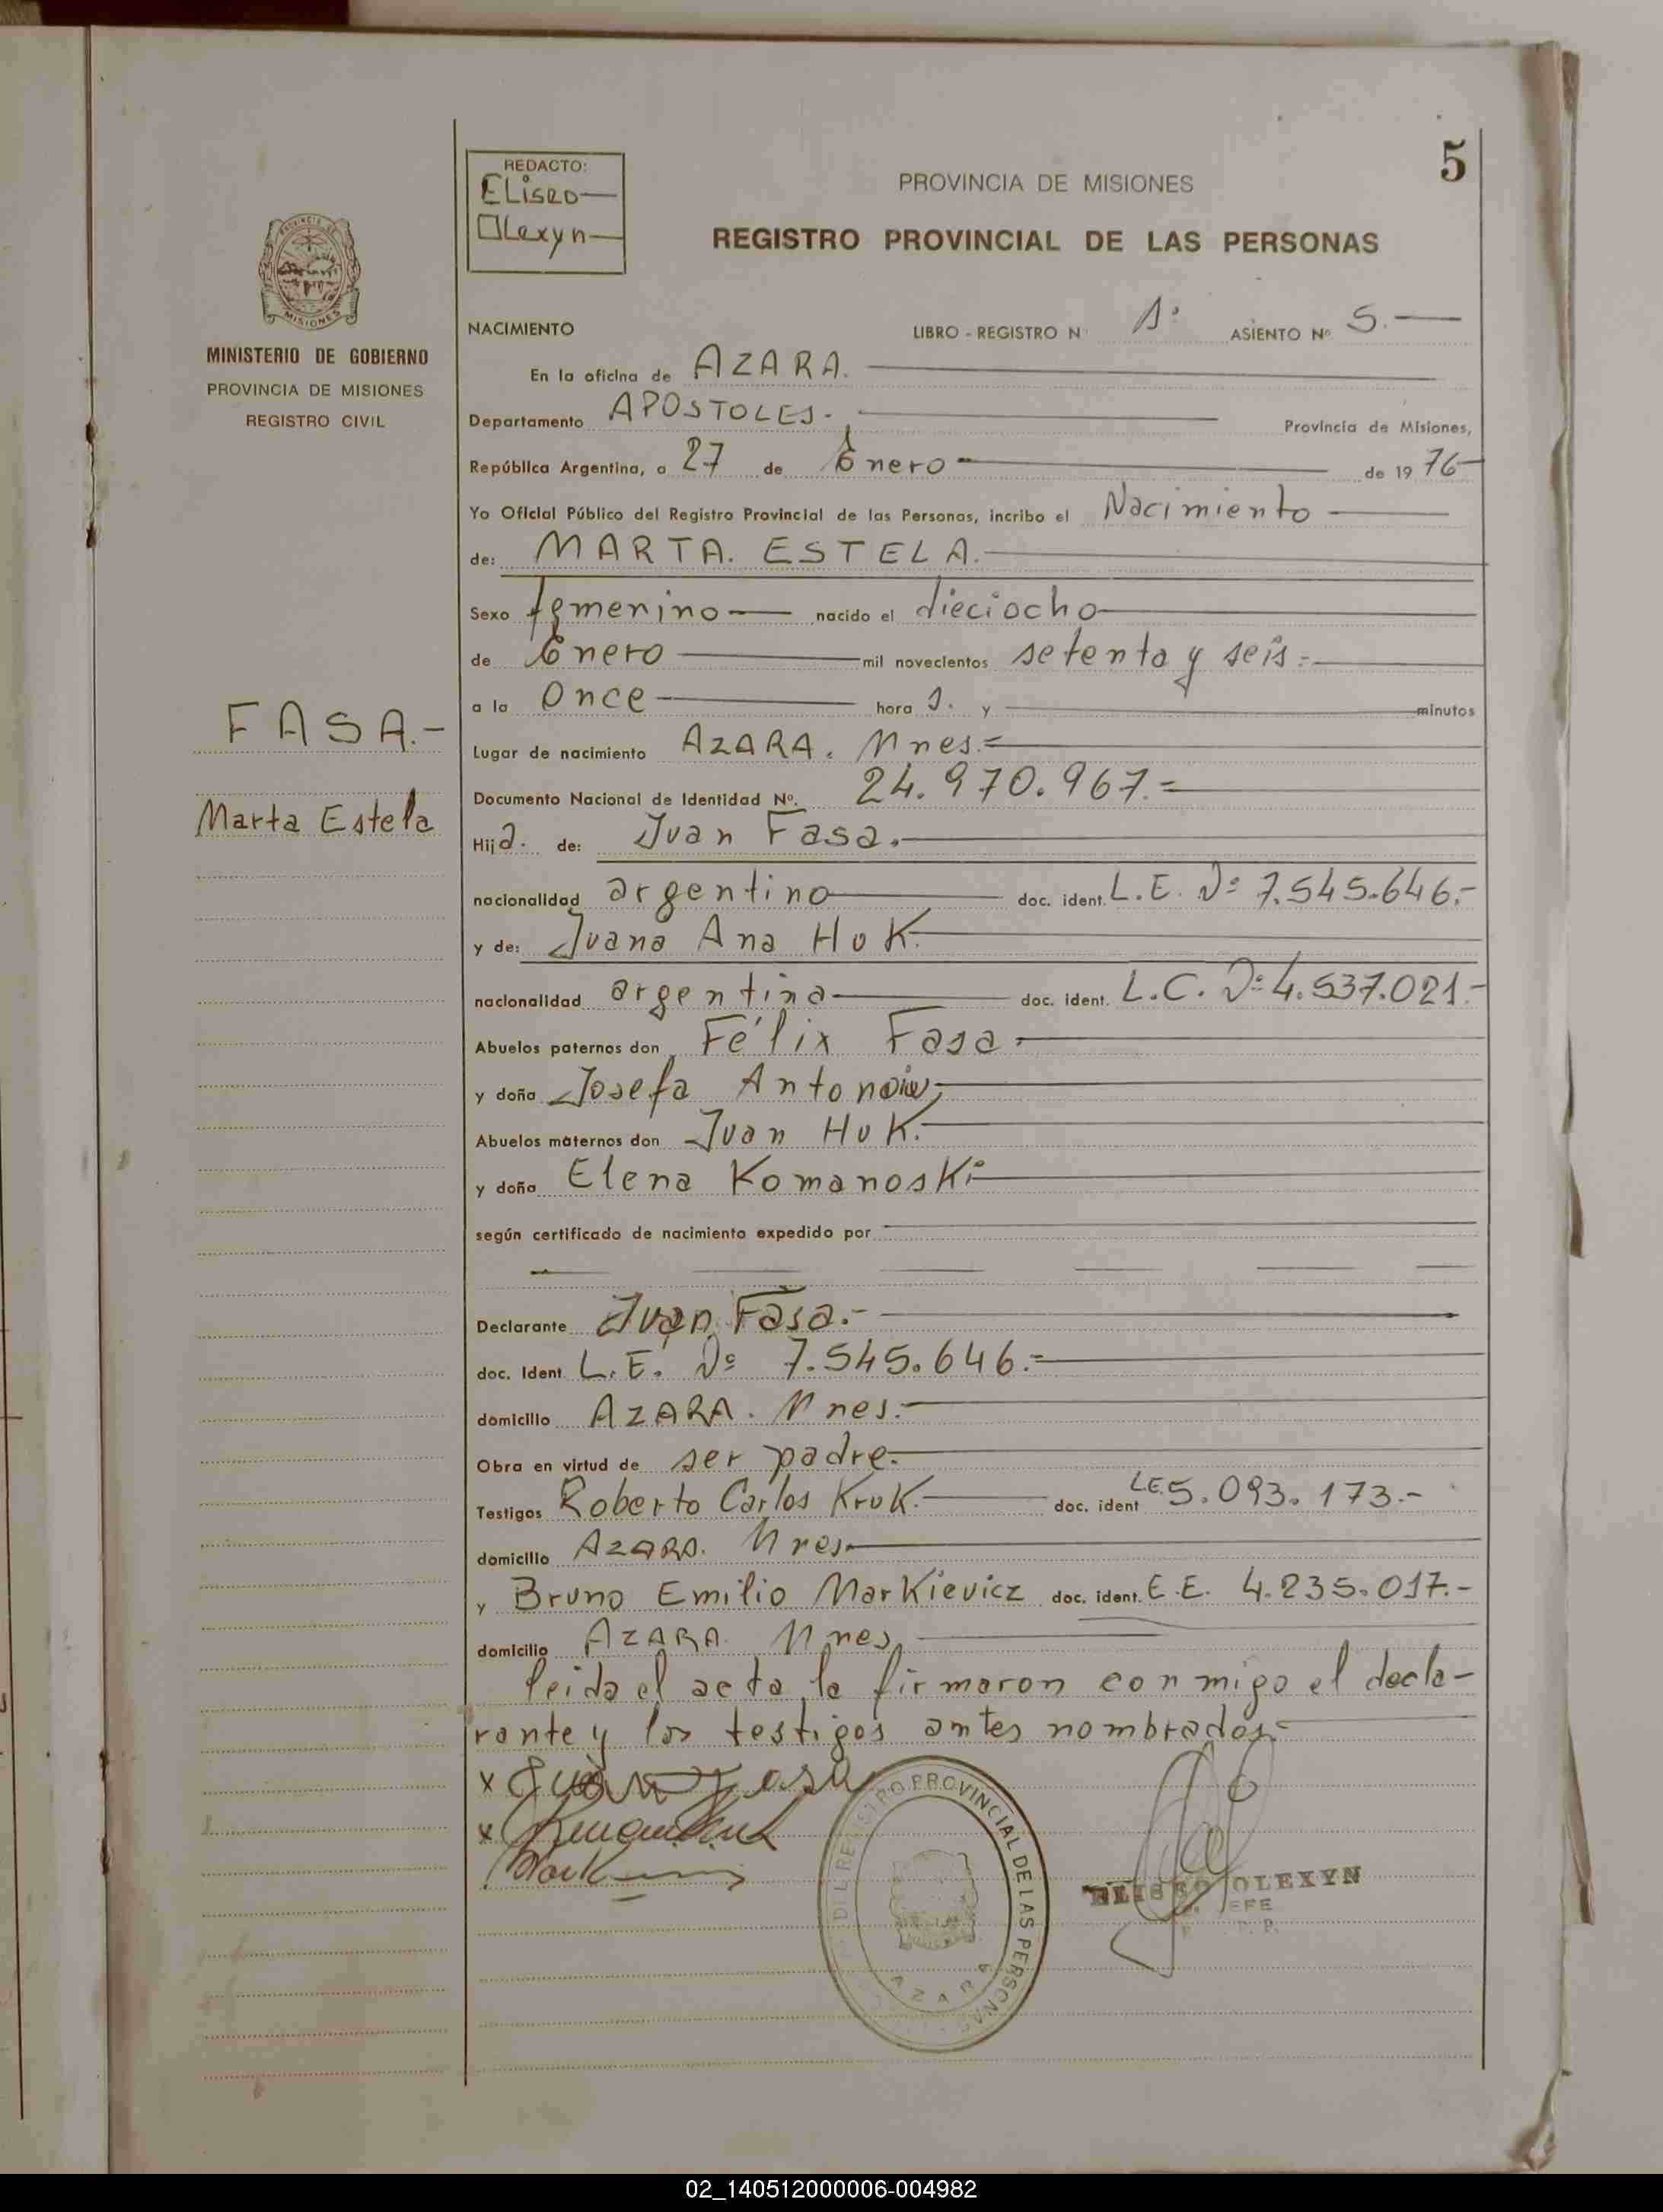 5
REDACTO:
ELiseo
Olexyn
PROVINCIA DE MISIONES
REGISTRO PROVINCIAL DE LAS PERSONAS
PROVINCIA DE
MISIONES
MINISTERIO DE GOBIERNO
PROVINCIA DE MISIONES
REGISTRO CIVIL
NACIMIENTO LIBRO - REGISTRO Nº 1º ASIENTO Nº 5.—
En la oficina de AZARA.
Departamento APOSTOLES. Provincia de Misiones,
República Argentina, a 27 de Enero de 1976
Yo Oficial Público del Registro Provincial de las Personas, incribo el Nacimiento
de: MARTA. ESTELA.
Sexo femenino nacido el dieciocho
de Enero mil novecientos setenta y seis.-
a la Once hora s. y minutos
FASA.-
Lugar de nacimiento AZARA. Mnes.=
Documento Nacional de Identidad Nº. 24.970.967.=
Marta Estela
Hija. de: Juan Fasa.
nacionalidad argentino doc. ident. L.E. Nº 7.545.646.-
y de: Juana Ana HuK.
nacionalidad argentina doc. ident. L.C. Nº 4.537.021.-
Abuelos paternos don Félix Fasa
y doña Josefa
Abuelos maternos don Juan HuK.
y doña Elena KomanosKi
según certificado de nacimiento expedido por
Declarante Juan Fasa.-
doc. Ident L.E. Nº 7.545.646.=
domicilio AZARA. Mnes.-
Obra en virtud de ser padre.
Testigos Roberto Carlos KruK. doc. ident LE 5.093.173.-
domicilio AZARA. Mnes
y Bruno Emilio MarKievicz doc. ident. E.E. 4.235.017.-
domicilio AZARA. Mnes
leida el acta la firmaron conmigo el decla-
rante y los testigos antes nombrados.
x Juan Fasa
x
REGISTRO PROVINCIAL DE LAS PERSONAS
AZARA
ELISEO OLEXYN
JEFE
02_140512000006-004982